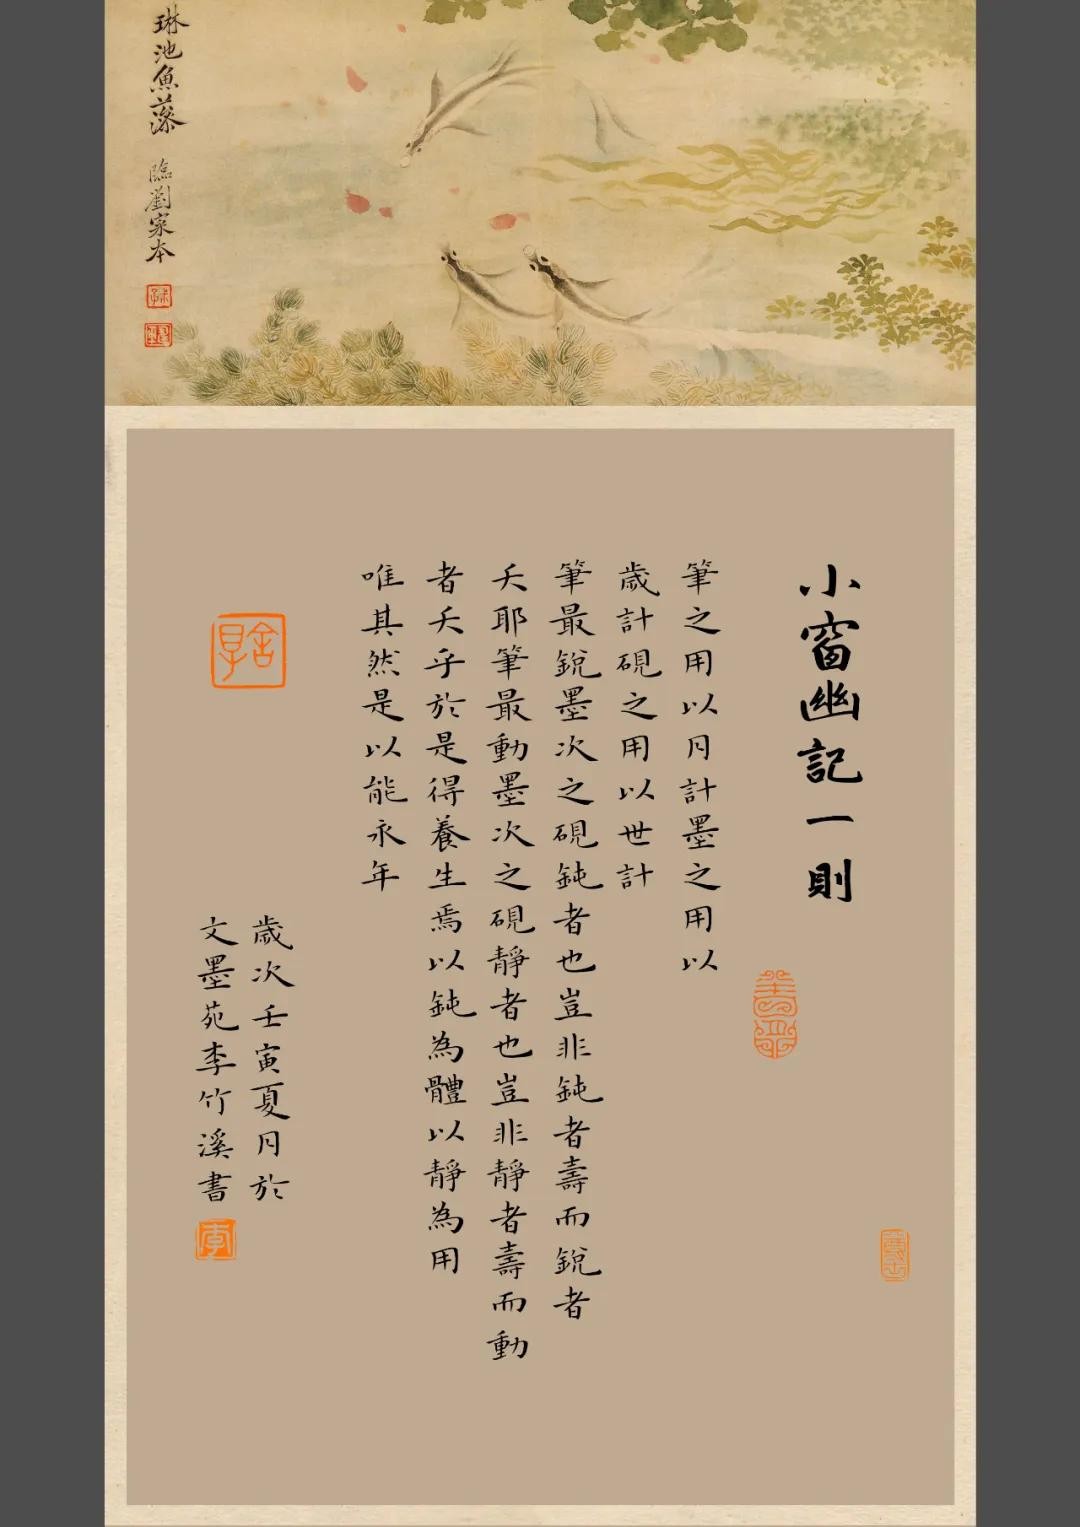 琳池魚藻
臨劉寀本
小窗幽記一則
筆之用以月計墨之用以
歲計硯之用以世計
筆最銳墨次之硯鈍者也豈非鈍者壽而銳者
夭耶筆最動墨次之硯靜者也豈非靜者壽而動
者夭乎於是得養生焉以鈍為體以靜為用
唯其然是以能永年
歲次壬寅夏月於
文墨苑李竹溪書
李